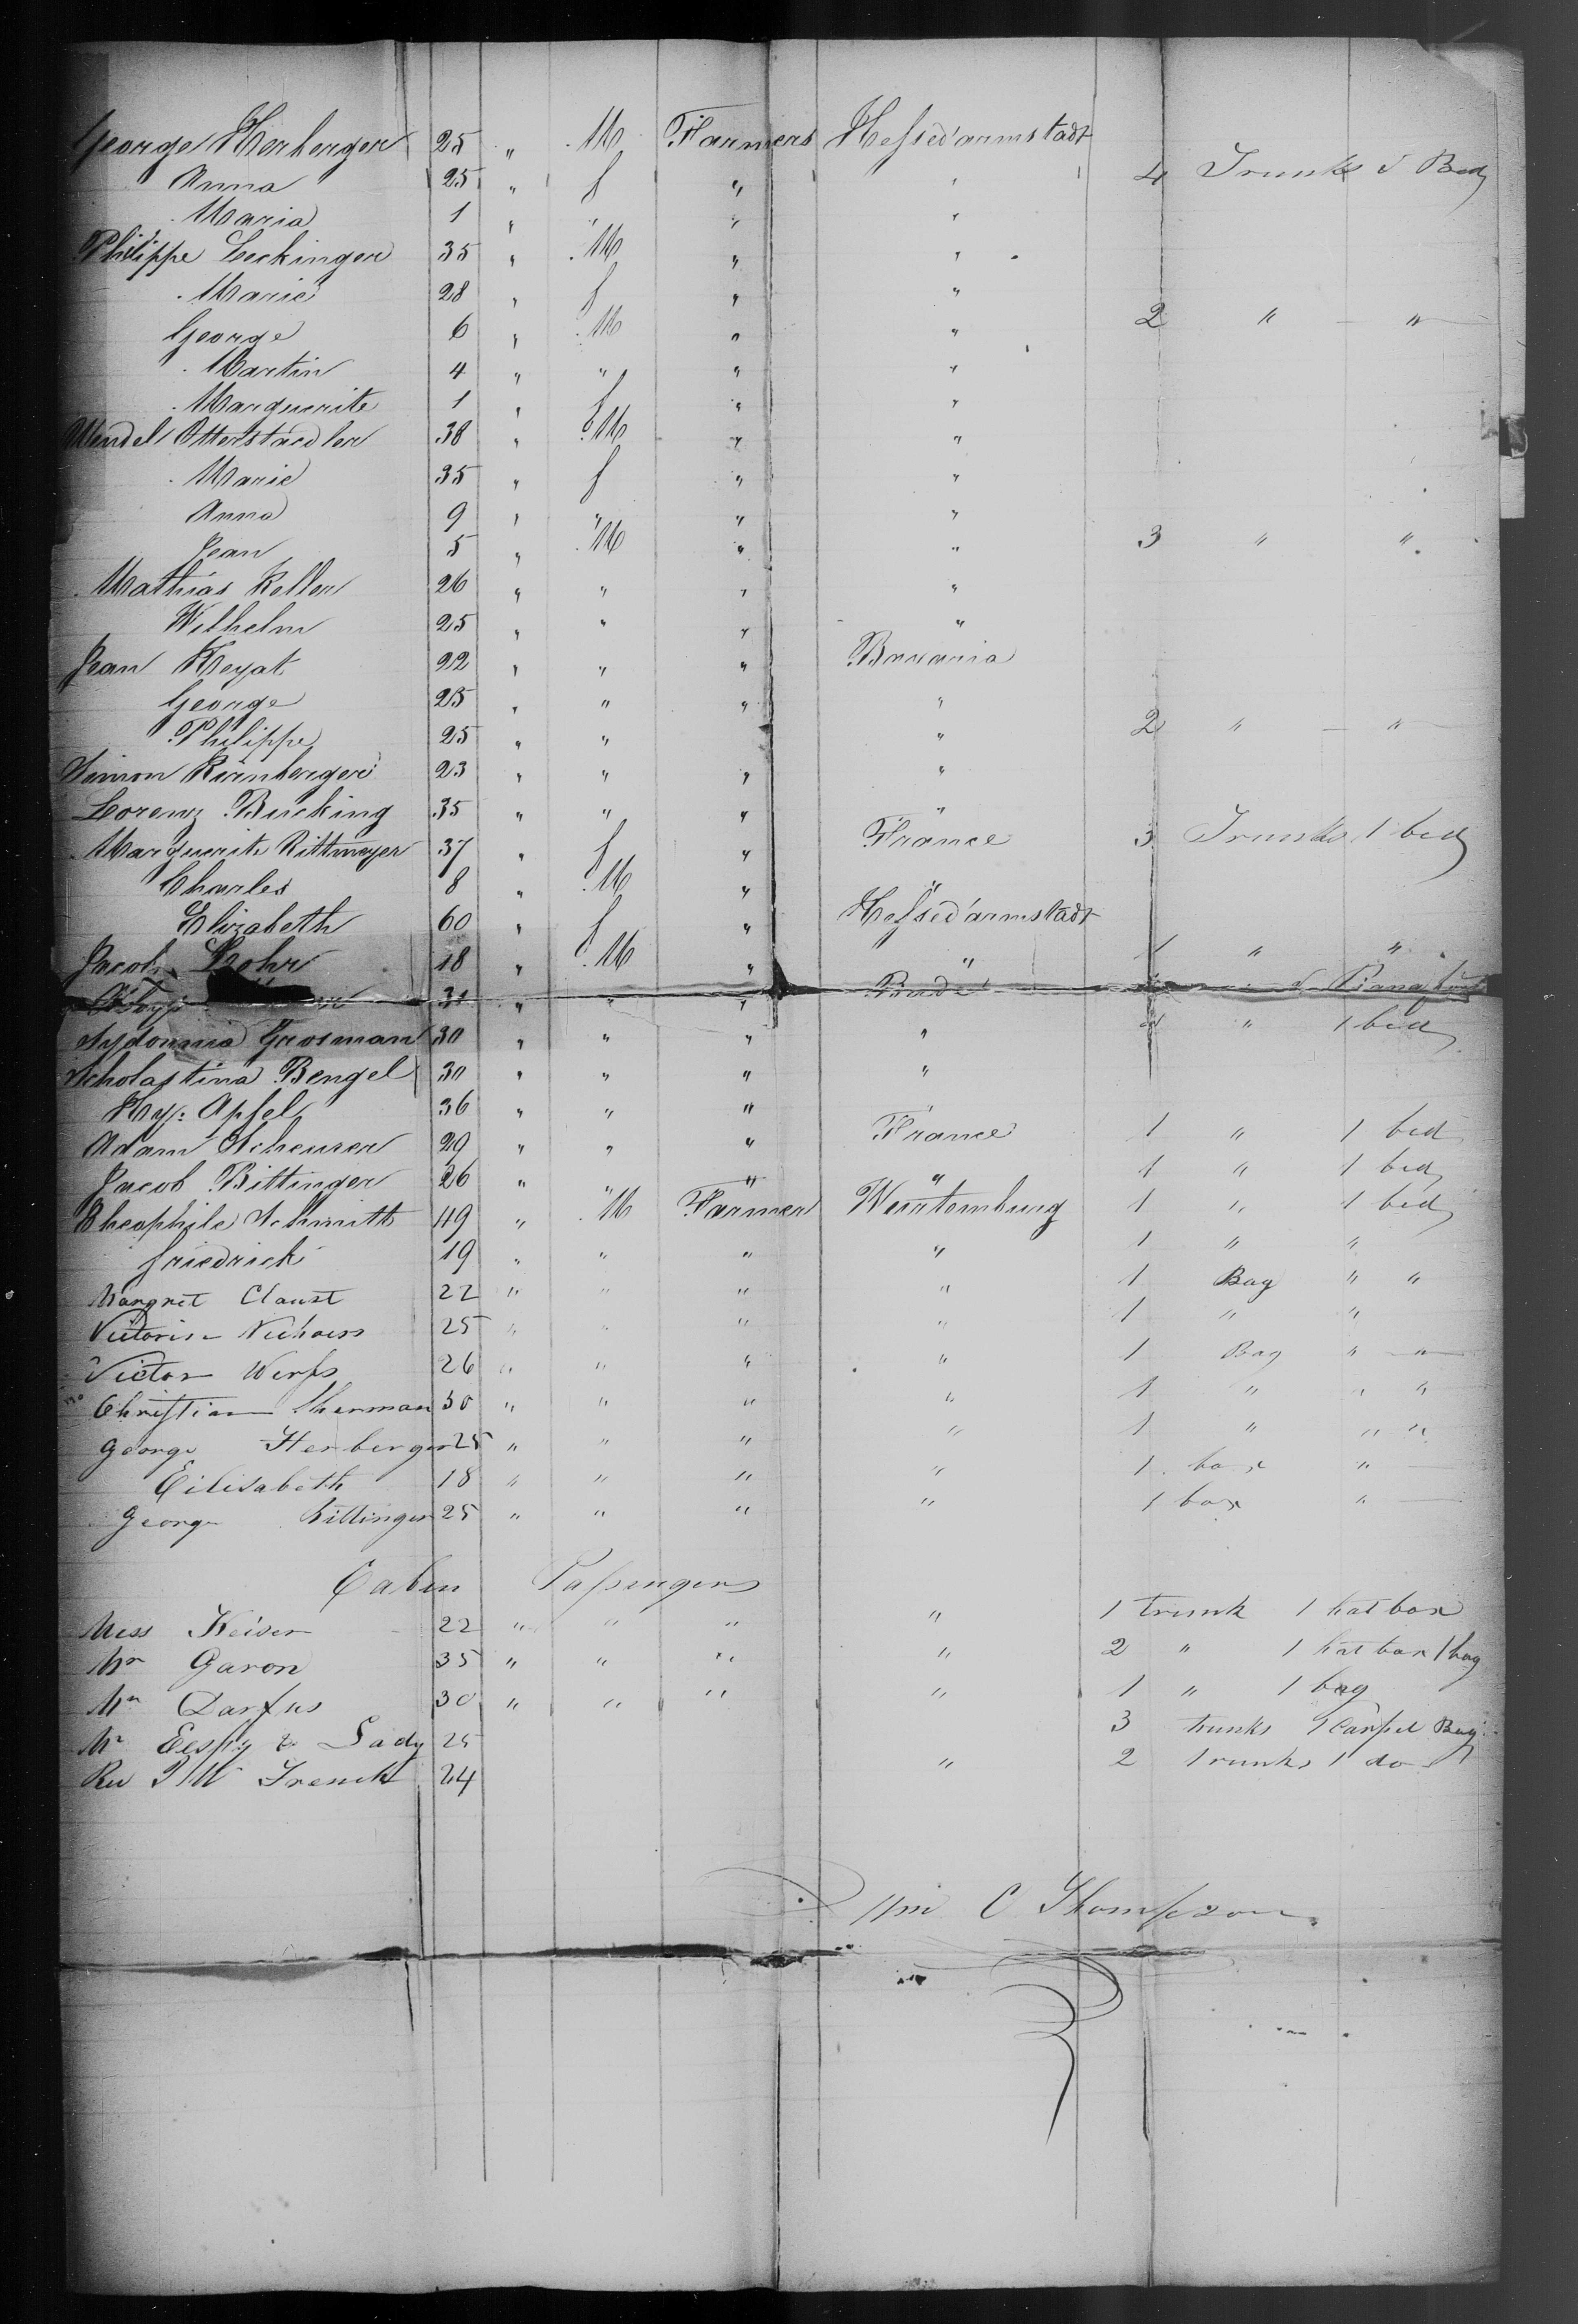 George Herberger 25 " M Farmers Hesse d'armstadt
Anna 25 " f " " 4 Trunks & Bed
Maria 1 " " " "
Philippe Leckinger 35 " M " "
Marie 28 " f " "
George 6 " M " " 2 " "
Martin 4 " " " "
Marguerite 1 " f " "
Wendel Otterstaedler 38 " M " "
Marie 35 " f " "
Anna 9 " " " "
Jean 5 " M " " 3 " "
Mathias Keller 26 " " " "
Wilhelm 25 " " " "
Jean Heyat 22 " " " Bavaria
George 25 " " " "
Philippe 25 " " " 2 " "
Simon Kirnberger 23 " " " "
Lorenz Bucking 35 " " " "
Marguerite Rittmeyer 37 " f " France 3 Trunks 1 bed
Charles 8 " M " "
Elizabeth 60 " f " Hesse d'armstadt
Jacob Lohr 18 " M " " 1 " "
31 " " " Bade &
Sydonnia Grosman 30 " " " " " 1 bed
Scholastina Bengel 30 " " " "
Hy: Apfel 36 " " "
Adam Scheurer 29 " " " France 1 " 1 bed
Jacob Bittinger 26 " " " " 1 " 1 bed
Theophile Schmitt 49 " M Farmer Weurtemburg 1 " 1 bed
friedrich 19 " " " " 1 " "
Margret Claust 22 " " " " 1 Bag " "
25 " " " " 1 " "
Victor 26 " " " " 1 Bag " "
Christian Sherman 30 " " " " 1 " " "
George Herberger 25 " " " " 1 " " "
Eilisabeth 18 " " " " 1 box "
George Bittinger 25 " " " " 1 box "
Cabin Passengers
Miss Keiser 22 " " " " 1 trunk 1 hat box
Mr Garon 35 " " " " 2 " 1 hat box 1 bag
Mr Darfus 30 " " " " 1 " 1 bag
Mr & Lady 25 3 trunks 1 Carpet Bag
Rev 24 " 2 Trunks 1 do
Wm C Thompson